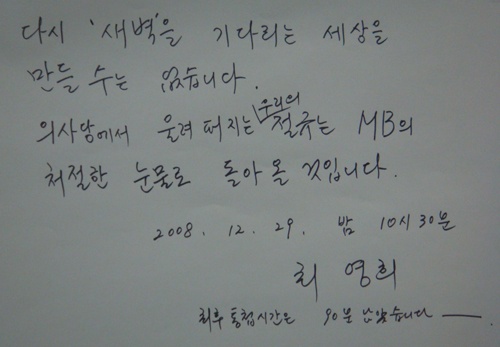 다시 '새벽'을 기다리는 세상을
만들 수는 없습니다.
의사당에서 울려 퍼지는 우리의 절규는 MB의
처절한 눈물로 돌아 올 것입니다.
2008. 12. 29. 밤 10시 30분
최 영희
최후 통첩시간은 90분 남았습니다 ―.